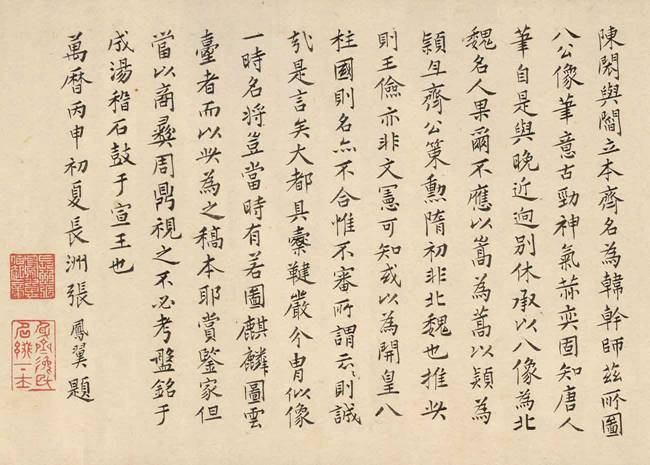 陳閎與閻立本齊名為韓幹師茲所圖
八公像筆意古勁神氣赫奕固知唐人
筆自是與晚近逈別休承以八像為北
魏名人果爾不應以嵩為蒿以頴為
頴且齊公策勳隋初非北魏也推此
則王儉亦非文憲可知或以為開皇八
柱國則名亦不合惟不審所謂云〻則誠
哉是言矣大都具櫜鞬嚴介胄似像
一時名將豈當時有若圖麒麟圖雲
臺者而以此為之稿本耶賞鑒家但
當以商彝周鼎視之不必考盤銘于
成湯稽石鼓于宣王也
萬曆丙申初夏長洲張鳳翼題